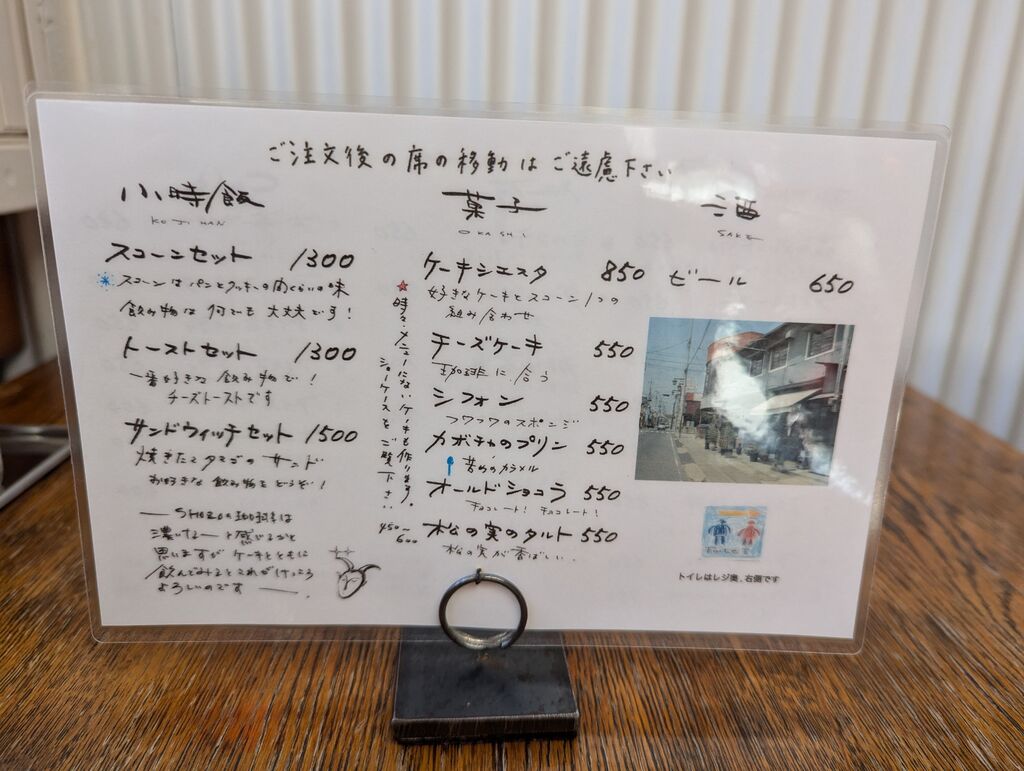 ご注文後の席の移動はご遠慮下さい
小時飯
KOJIHAN
スコーンセット 1300
スコーンはパンとクッキーの間くらいの味
飲み物は何でも大丈夫です!
トーストセット 1300
一番好きな飲み物で!
チーズトーストです
サンドウィッチセット 1500
焼きたてタマゴのサンド
お好きな飲み物をどうぞ!
SHOZOの珈琲は
濃いなーと感じるかと
思いますがケーキとともに
飲んでみるとこれがけっこう
よろしいのです
菓子
OKASHI
時々メニューにないケーキも作ります。
ショーケースをご覧下さい
450〜
600
ケーキシエスタ 850
好きなケーキとスコーン1つの
組み合わせ
チーズケーキ 550
珈琲に合う
シフォン 550
フワフワのスポンジ
カボチャのプリン 550
昔ながらのカラメル
オールドショコラ 550
チョコレート! チョコレート!
松の実のタルト 550
松の実が香ばしい.
酒
SAKE
ビール 650
トイレはレジ奥、右側です